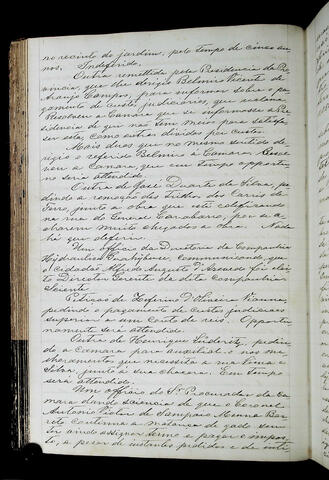 no recinto do jardim, pelo tempo de cinco an-
nos. Indeferido.
Outra remettida pela Presidencia da Pro-
vincia, que lhe dirigio Belmiro Vicente de
Araujo Campos, para informar sobre o pa-
gamento de custas judiciarias, que reclama.
Resolveu a Camara que se informasse á Pre-
sidencia de que não tem meios para satisfa-
zer esta, como outras dividas por custas.
Mais duas que no mesmo sentido di-
rigio o referido Belmiro á Camara. Resol-
veu a Camara, que em tempo opportu-
no será attendido.
Outra de José Duarte da Silva, pe-
dindo a remoção dos trilhos dos Carris de
Ferro, junto a obra que está edificando
na rua do General Canabarro, por se a-
charem muito chegados a obra. Nada
ha que deferir.
Um officio da Directoria da Companhia
Hydraulica, communicando, que
o cidadão Alfredo Augusto d'Azevedo foi elei-
to Director Gerente da dita companhia.
Sciente.
Petição de Zeferino d'Oliveira Vianna,
pedindo o pagamento de custas judiciaes
superior a um conto de reis. Opportu-
namente será attendido.
Outra de Henrique, pedin-
do a Camara para mandal. os me-
lhoramentos que necessita a rua
Silva, junto á sua chacara. Em tempo
será attendido.
Um officio do Sr. Procurador da Ca-
mara dando sciencia de que o Coronel
Antonio Victor de Sampaio Menna Bar-
reto continua a matança de gado sem
ter vindo assignar termo e pagar o impos-
to, a pezar de instantes pedidos e de inti-